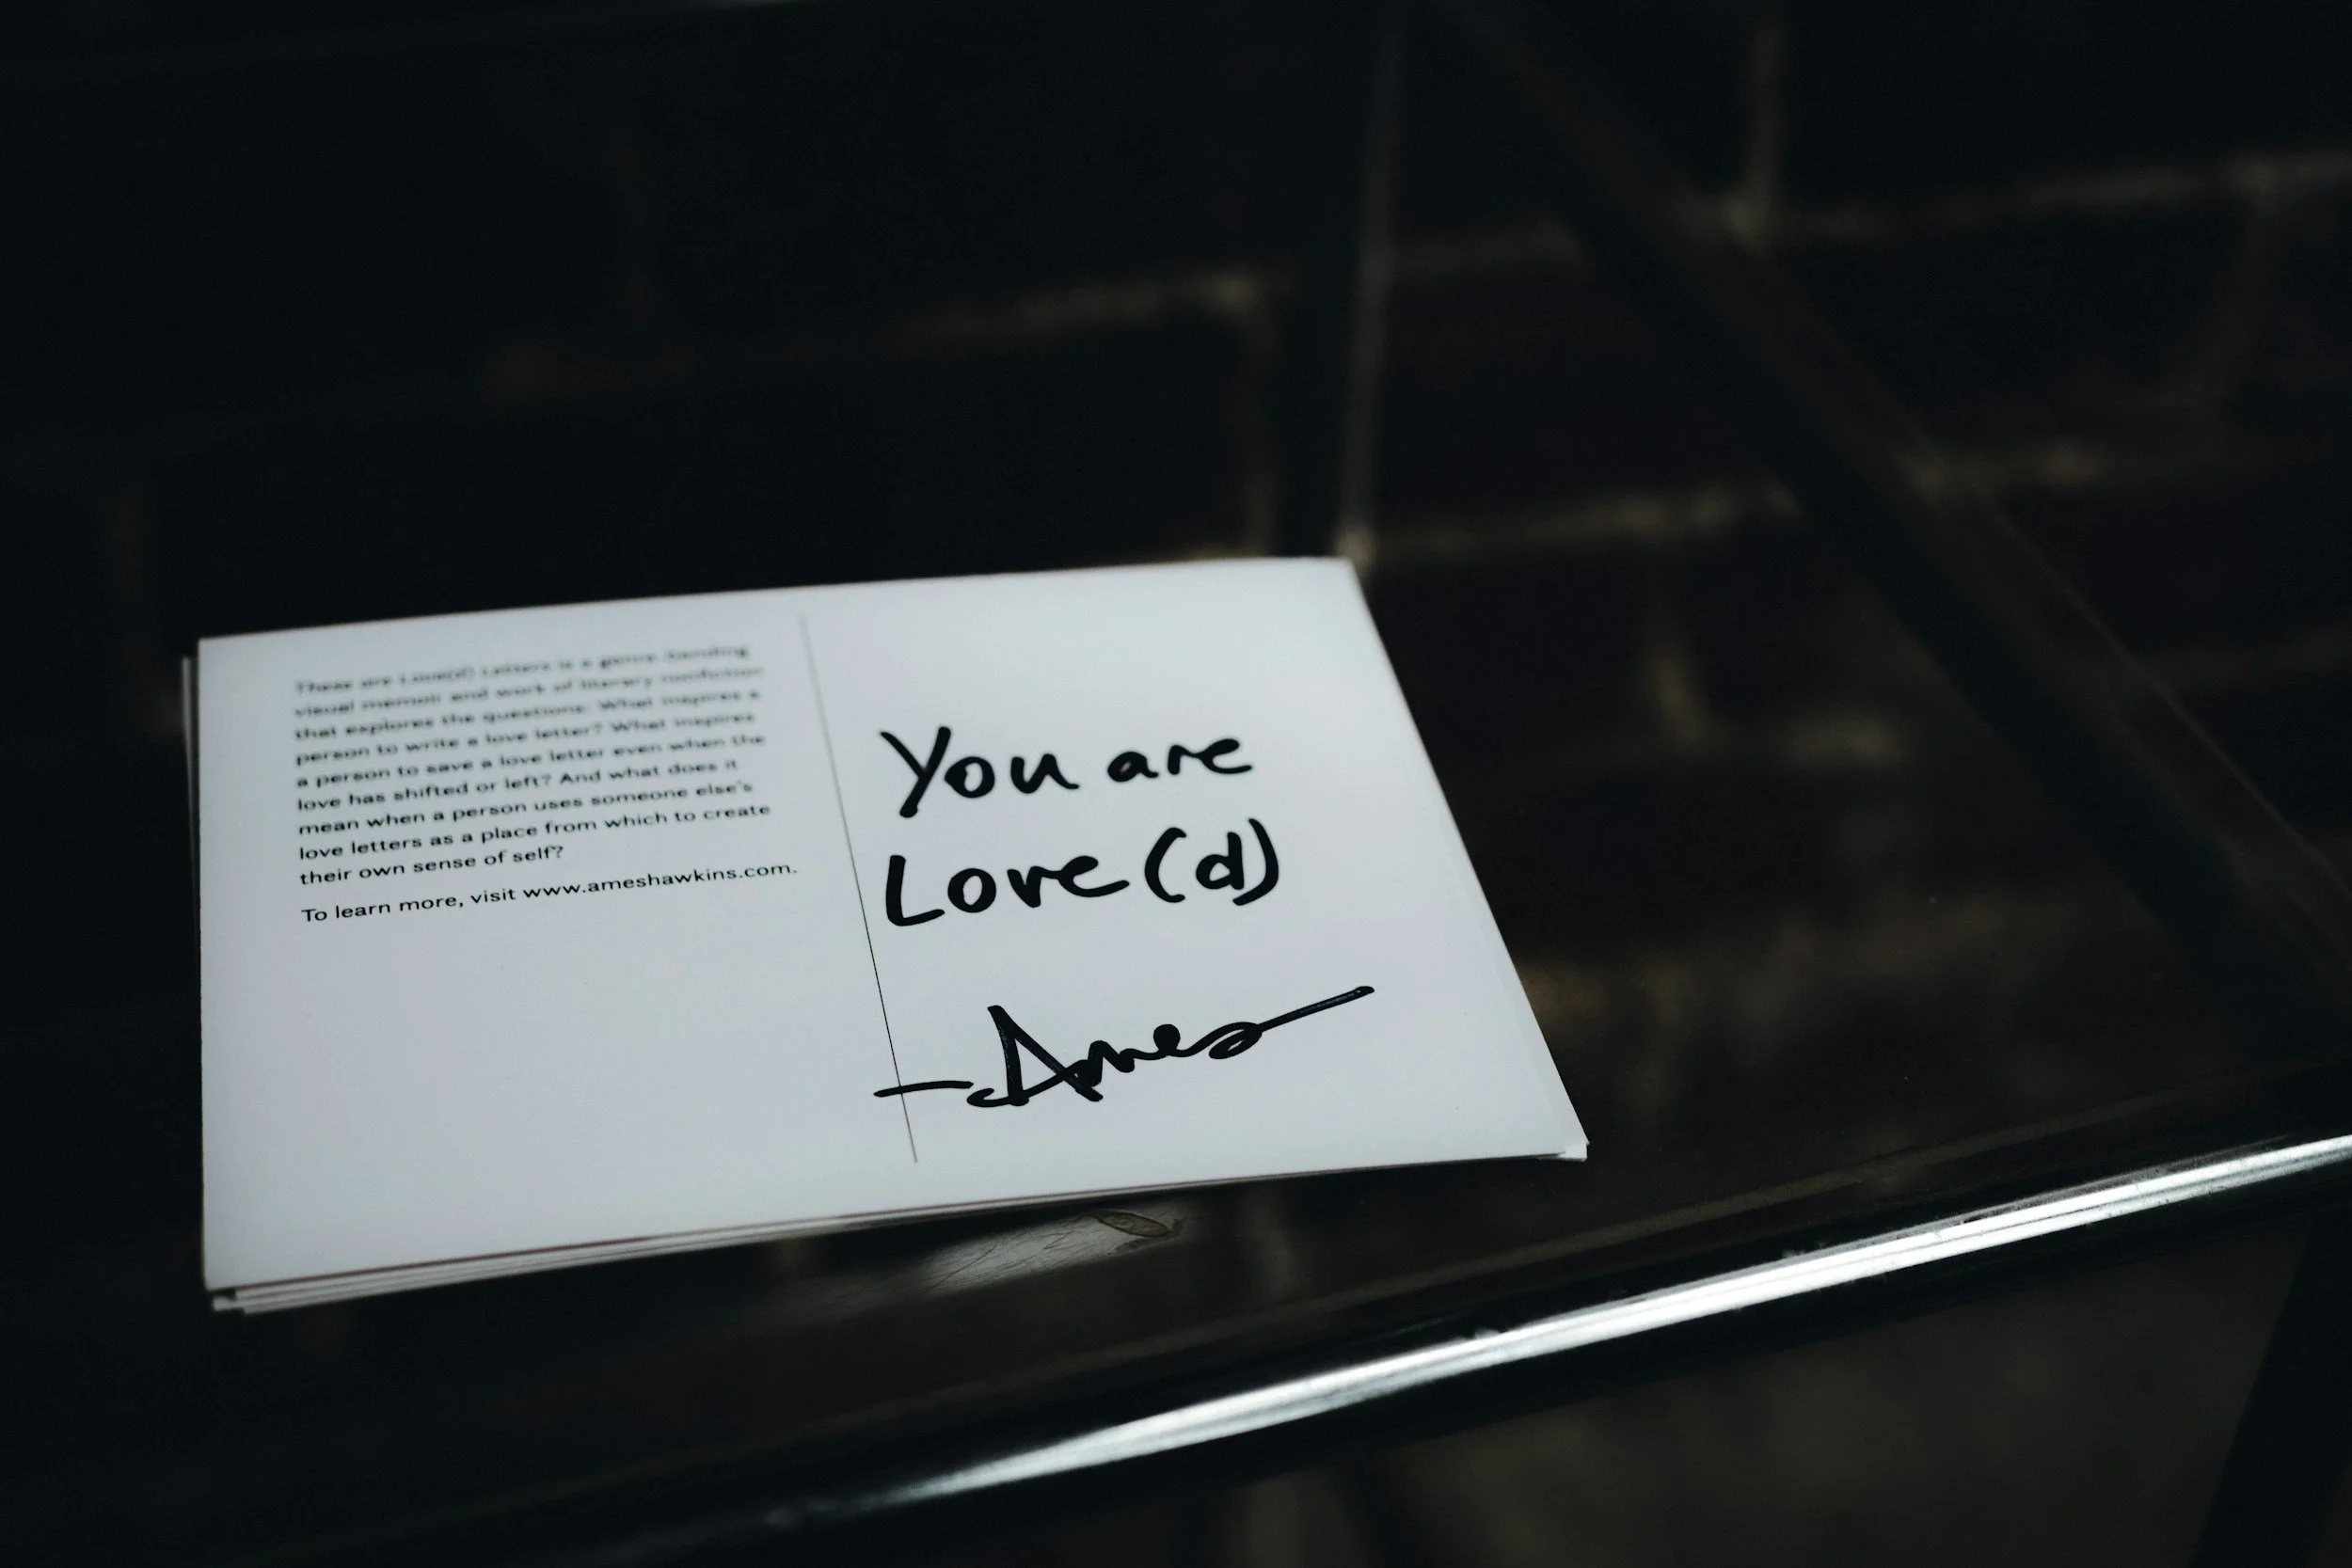 These are Love(d) Letters is a genre-bending
visual memoir and work of literary nonfiction
that explores the questions: What inspires a
person to write a love letter? What inspires
a person to save a love letter even when the
love has shifted or left? And what does it
mean when a person uses someone else's
love letters as a place from which to create
their own sense of self?
To learn more, visit www.ameshawkins.com.
You are
Love(d)
-Ames